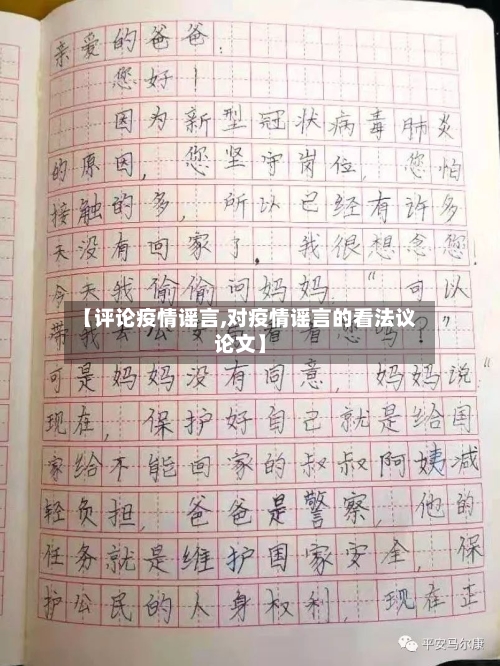 亲爱的爸爸:
您好!
因为新型冠状病毒肺炎
的原因,您坚守岗位,您怕
接触的多,所以已经有许多
天没有回家了,我很想念您!
今天我偷偷问妈妈:“可以
【评论疫情谣言,对疫情谣言的看法议
带我去公 看看 吗?”
论文】
可是妈妈没有同意,妈妈说:
现在,保护好自己就是给国
家给不能回家的叔叔阿姨减
轻负担,爸爸是警察,他的
任务就是维护国家安全,保
护公民的人身权利,现在正
平安马尔康